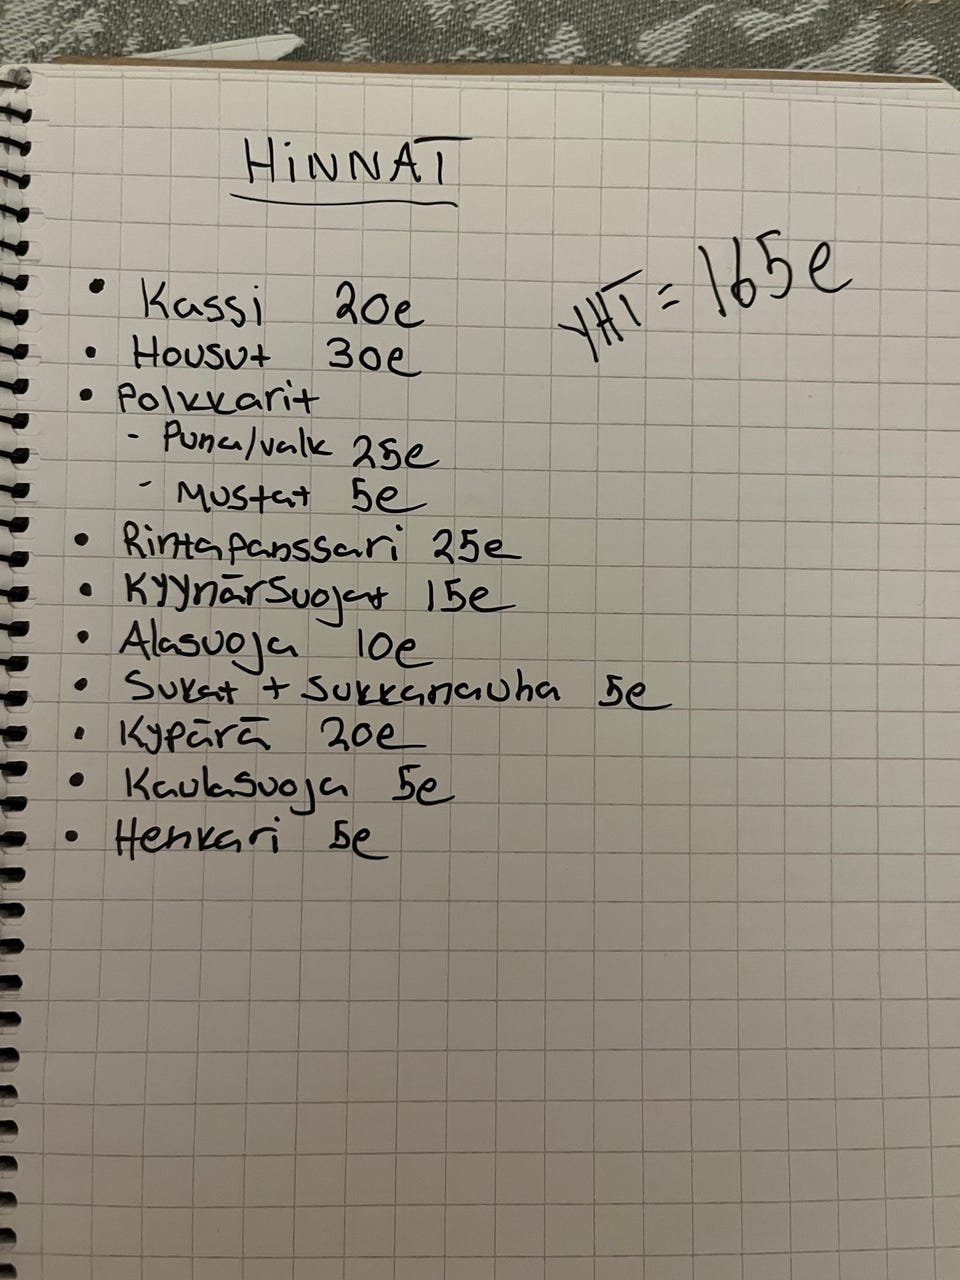 HINNAT
YHT = 165e
• Kassi 20e
• Housut 30e
• Polkkarit
- Puna/valk 25e
- Mustat 5e
• Rintapanssari 25e
• Kyynärsuojat 15e
• Alasuoja 10e
• Sukat + sukkanauha 5e
• Kypärä 20e
• Kaulasuoja 5e
• Henkari 5e